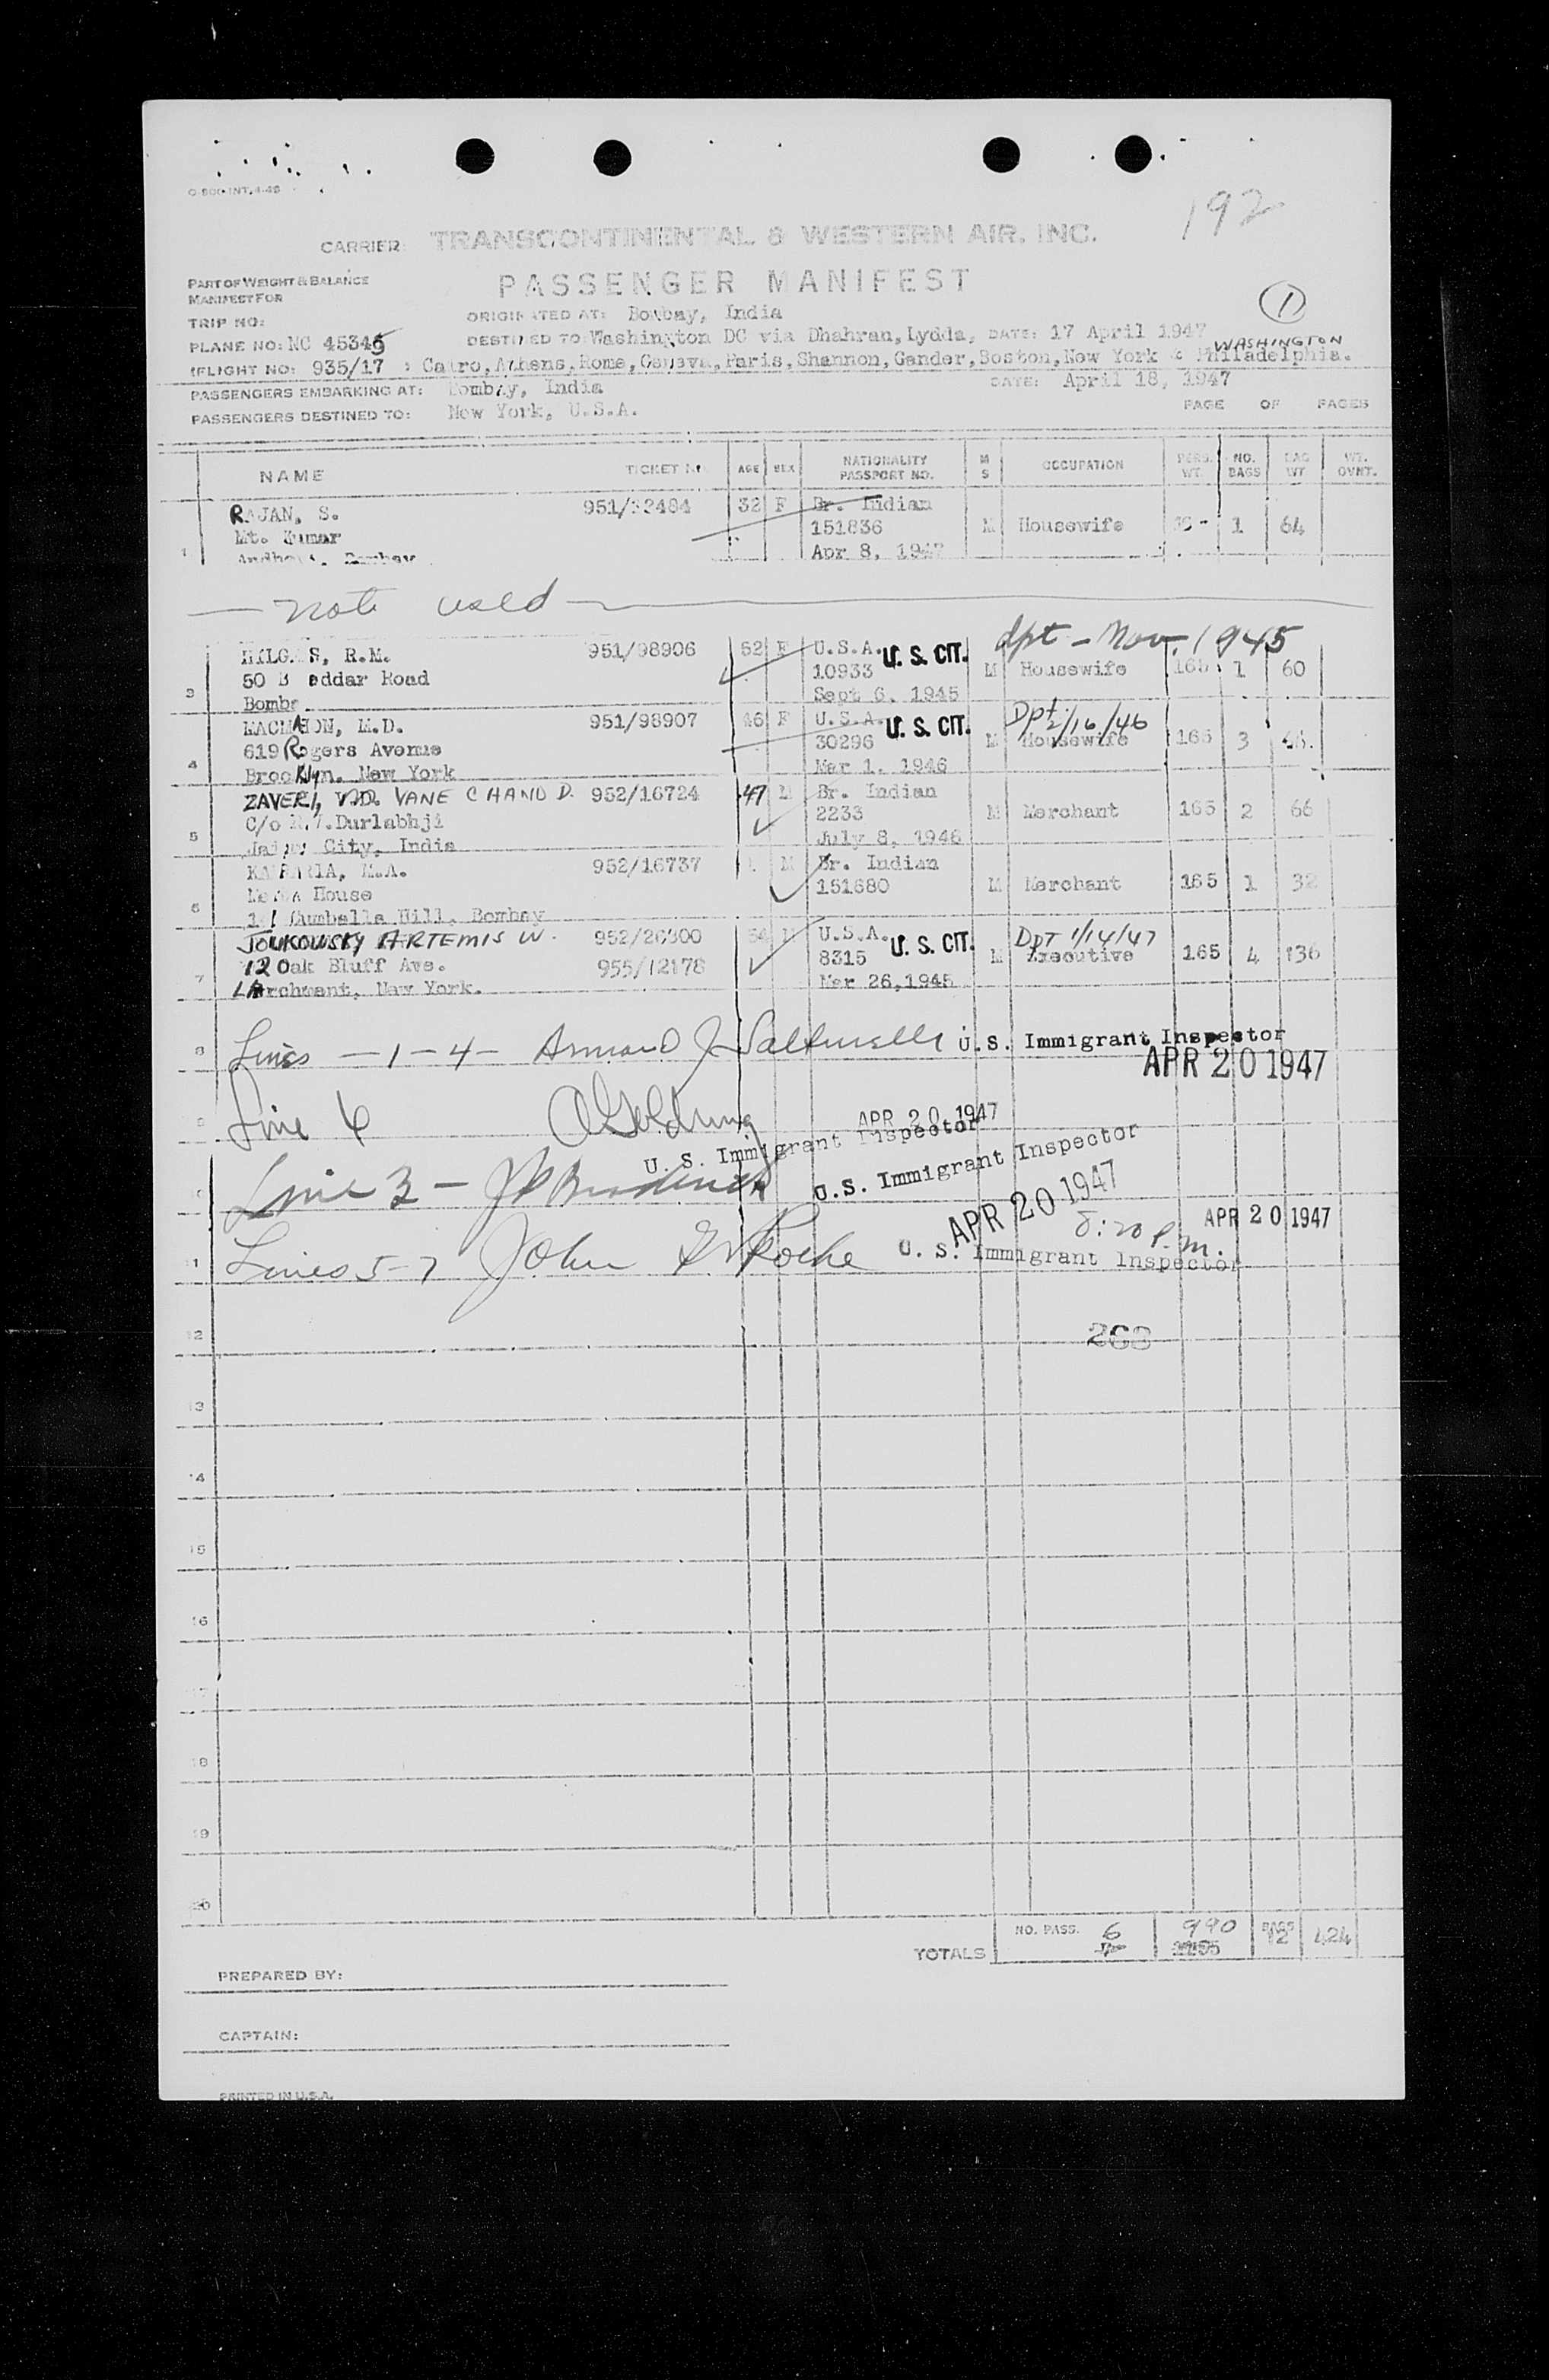 O-800-INT.4-46
192
CARRIER: TRANSCONTINENTAL & WESTERN AIR. INC.
PART OF WEIGHT & BALANCE
MANIFEST FOR
PASSENGER MANIFEST
1
TRIP NO:
ORIGINATED AT: Bombay, India
PLANE NO: NC 45345
DESTINED TO: Washington DC via Dhahran, Lydda, DATE: 17 April 1947
WASHINGTON
FLIGHT NO: 935/17 : Cairo, Athens, Rome, Geneva, Paris, Shannon, Gander, Boston, New York & Philadelphia.
PASSENGERS EMBARKING AT: Bombay, India DATE: April 18, 1947
PASSENGERS DESTINED TO: New York, U.S.A. PAGE OF PAGES
NAME TICKET NO. AGE SEX NATIONALITY PASSPORT NO. M S OCCUPATION PERS. WT. NO. BAGS BAG WT WT. OVNT.
RAJAN, S. 951/32484 32 F Br. Indian
Mt. Kumar 151836 M Housewife 1 64
1 Bombay Apr 8, 1947
— note used —
dpt - Nov. 1945
R.M. 951/98906 52 F U.S.A. U. S. CIT.
50 B eddar Road 10933 M Housewife 165 1 60
3 Bomba Sept 6, 1945
MACMAHON, M.D. 951/98907 46 F U.S.A. U. S. CIT. Dpt. 2/16/46
619 Rogers Avenue 30296 M Housewife 165 3
4 Brooklyn, New York Mar 1, 1946
ZAVERI, V.D. VANE CHAND D. 952/16724 47 M Br. Indian
C/o Durlabhji 2233 M Merchant 165 2 66
5 City, India July 8, 1946
M.A. 952/16737 M Br. Indian
House 151680 M Merchant 165 1 32
6 Cumballa Hill, Bombay
JOUKOWSKY ARTEMIS W. 952/26300 54 M U.S.A. U. S. CIT. DPT 1/14/47
12 Oak Bluff Ave. 955/12178 8315 M Executive 165 4 136
7 Larchmont, New York. Mar 26, 1945
8 Lines — 1 — 4 — Armand J. U.S. Immigrant Inspector
APR 20 1947
9 Line 6 Goldring APR 20 1947
U. S. Immigrant Inspector
Line 3 — U.S. Immigrant Inspector
APR 20 1947
8:20 P.m. APR 20 1947
11 Lines 5-7 John Roche U. S. Immigrant Inspector
12 268
13
14
15
16
17
18
19
20
TOTALS NO. PASS. 6 990 BAGS 12 424
PREPARED BY:
CAPTAIN:
PRINTED IN U.S.A.